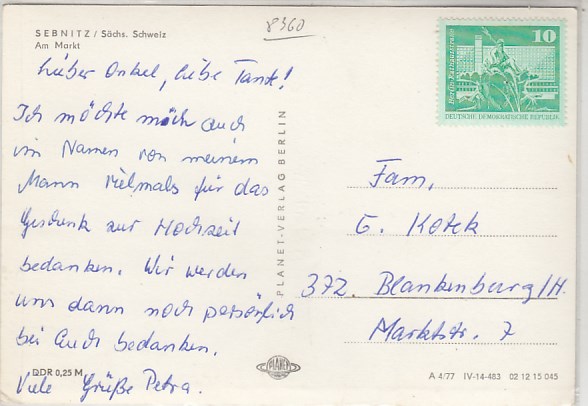 8360
SEBNITZ / Sächs. Schweiz
Am Markt
Lieber Onkel, liebe Tante!
Ich möchte mich auch
im Namen von meinem
Mann vielmals für das
Geschenk zur Hochzeit
bedanken. Wir werden
uns dann noch persönlich
bei Euch bedanken.
Viele Grüße Petra.
DDR 0,25 M
PLANET-VERLAG BERLIN
PLANET
10
Berlin, Rathausstraße
DEUTSCHE DEMOKRATISCHE REPUBLIK
Fam.
G. Kotek
372. Blankenburg/H.
Marktstr. 7
A 4/77 IV-14-483 02 12 15 045